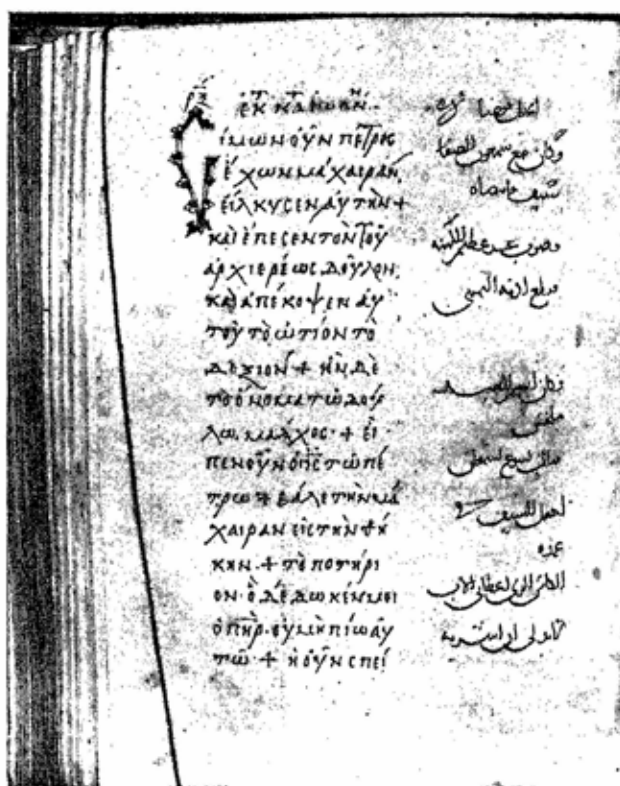 ἐκ κτ ἰωάν
Σίμων οὖν πέτρος
ἔχων μάχαιραν,
εἵλκυσεν αὐτὴν +
καὶ ἔπεσεν τὸν τοῦ
ἀρχιερέως δοῦλον,
καὶ ἀπέκοψεν αὐ
τοῦ τὸ ὠτίον τὸ
δεξιόν + ἦν δὲ
τὸ ὄνομα τῶ δού
λω. μάλχος · + εἶ
πεν οὖν ὁ ις τῶ πέ
τρω + βάλε τὴν μά
χαιραν εἰς τὴν θή
κην. + τὸ ποτήρι
ον. ὃ δέδωκέν μοι
ὁ πηρ. οὐ μὴ πίω αὐ
τῶ + ἡ οὖν σπεῖ
وكان مع سمعون الصفا
وضرب عبد عظيم الكهنة
وقطع اذنه اليمنى
وكان اسم العبد
ملخس
فقال يسوع
اجعل السيف في
غمده
الكاس الذي اعطاني الاب